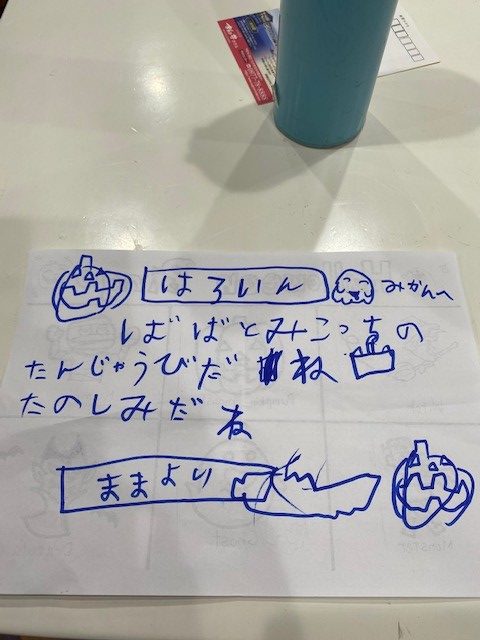 はろいん
みかんへ
ばばとみこっちの
たんじょうびだね
たのしみだね
ままより